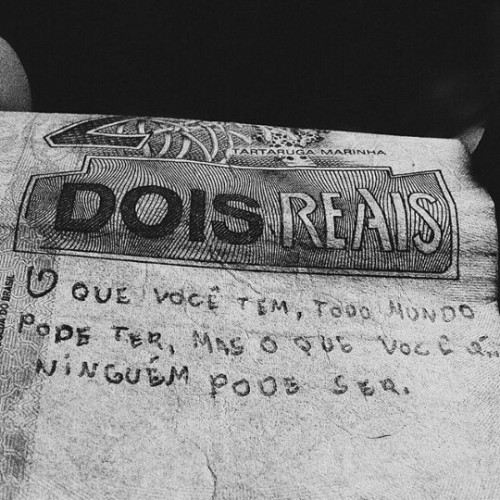 TARTARUGA MARINHA
DOIS REAIS
O QUE VOCÊ TEM, TODO MUNDO
PODE TER, MAS O QUE VOCÊ É,
NINGUÉM PODE SER.
DO BRASIL